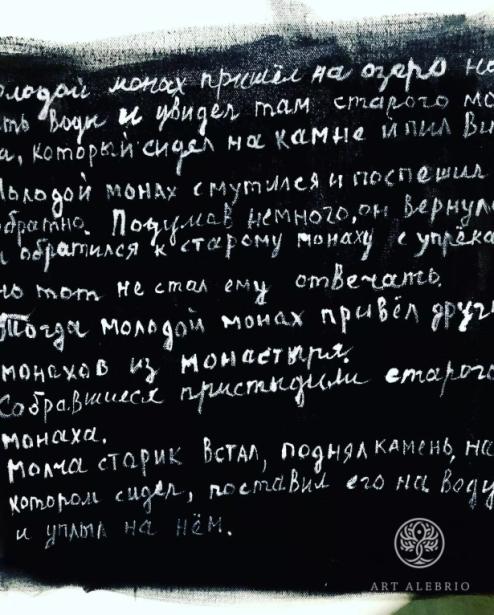 олодой монах пришёл на озеро на
ть воды и увидел там старого мо
а, который сидел на камне и пил ви
Молодой монах смутился и поспешил
обратно. Подумав немного, он вернулс
и обратился к старому монаху с упрёка
но тот не стал ему отвечать.
Тогда молодой монах привёл други
монахов из монастыря.
Собравшиеся пристыдили старого
монаха.
Молча старик встал, поднял камень, на
котором сидел, поставил его на воду
и уплыл на нём.
ART ALEBRIO